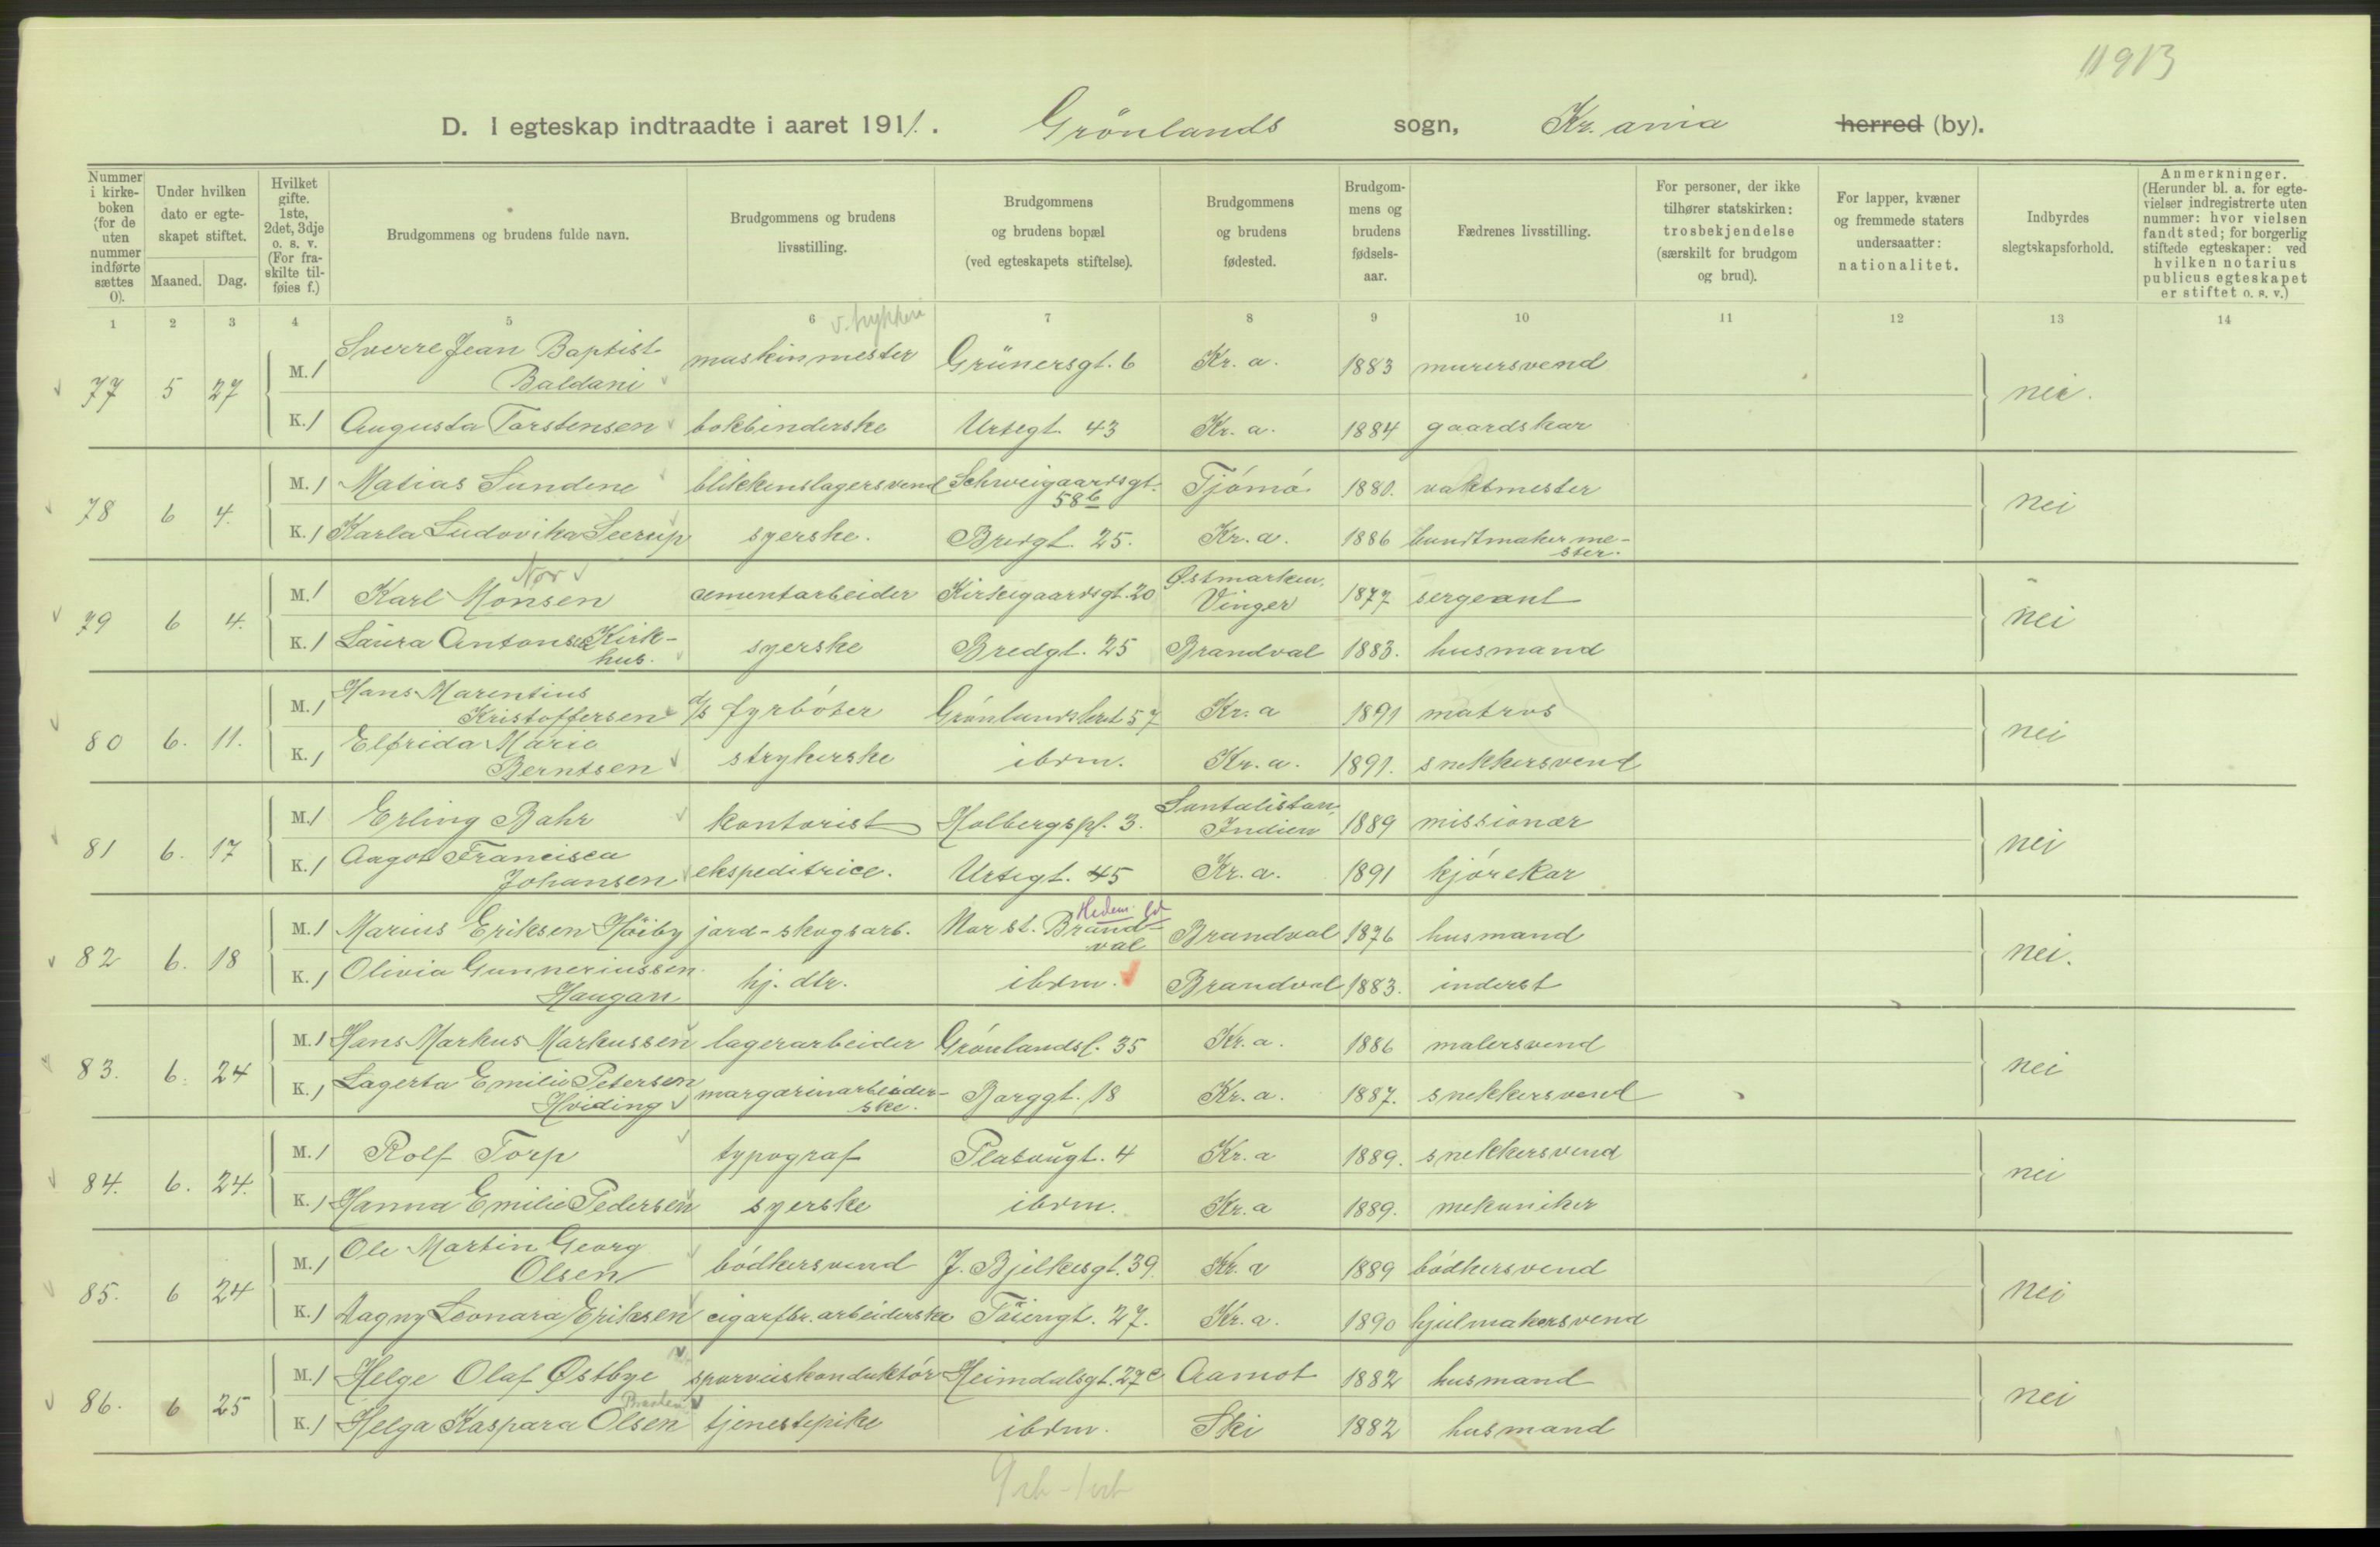 11913
D. I egteskap indtraadte i aaret 1911. Grönlands sogn, Kr.ania herred (by).
Nummer i kirkeboken (for de uten nummer indførte sættes 0).
Under hvilken dato er egteskapet stiftet.
Maaned. Dag.
Hvilket gifte. 1ste, 2det, 3dje o. s. v. (For fraskilte tilføies f.)
Brudgommens og brudens fulde navn.
Brudgommens og brudens livsstilling.
Brudgommens og brudens bopæl (ved egteskapets stiftelse).
Brudgommens og brudens fødested.
Brudgommens og brudens fødselsaar.
Fædrenes livsstilling.
For personer, der ikke tilhører statskirken: trosbekjendelse (særskilt for brudgom og brud).
For lapper, kvæner og fremmede staters undersaatter: nationalitet.
Indbyrdes slegtskapsforhold.
Anmerkninger. (Herunder bl. a. for egtevielser indregistrerte uten nummer: hvor vielsen fandt sted; for borgerlig stiftede egteskaper: ved hvilken notarius publicus egteskapet er stiftet o. s. v.)
1 2 3 4 5 6 7 8 9 10 11 12 13 14
v. trykkeri
77 5 27 M. 1 Sverre Jean Baptist Baldani maskinmester Grünersgt. 6 Kr. a. 1883 murersvend nei.
K. 1 Augusta Torstensen bokbinderske Urtegt. 43 Kr. a. 1884 gaardskar
78 6 4. M. 1 Matias Sundene blikkenslagersvend Schweigaardsgt. 58b Tjómó 1880. vaktmester nei
K. 1 Karla Ludovika Seerup syerske. Bredgt. 25. Kr. a. 1886 bundtmakermester.
79 6 4. M. 1 Karl Monsen Nor cementarbeider Kirkegaardsgt. 20 Østmarken, Vinger 1877 sergeant nei
K. 1 Laura Antonsen Kirkhus. syerske Bredgt. 25 Brandval 1883. husmand
80 6. 11. M. 1 Hans Marentius Kristoffersen d/s fyrbóter Grónlandsleret 57 Kr. a 1891 matros nei
K. 1 Elfrida Marie Berntsen strykerske ibdm. Kr. a. 1891. snekkersvend
81 6. 17 M. 1 Erling Bahr kontorist Holbergspl. 3. Santalistan, Indien 1889 missionær nei
K. 1 Aagot Francisca Johansen ekspeditrice. Urtegt. 45 Kr. a. 1891 kjórekar
82 6. 18 M. 1 Marius Eriksen Höiby jord-skogsarb. Nor st. Brandval Hedem. Brandval 1876 husmand nei.
K. 1 Olivia Gunneriussen Haugan hj. dtr. ibdm. Brandval 1883. inderst
83. 6. 24 M. 1 Hans Markus Markussen lagerarbeider Grónlandsl. 35 Kr. a. 1886 malersvend nei
K. 1 Lagerta Emilie Petersen Hviding margarinarbeiderske. Borggt. 18 Kr. a. 1887. snekkersvend
84. 6. 24. M. 1 Rolf Torp typograf Platougt. 4 Kr. a 1889. snekkersvend nei
K. 1 Hanna Emilie Pedersen syerske ibdm. Kr. a 1889. mekaniker
85. 6 24 M. 1 Ole Martin Georg Olsen bódkersvend J. Bjelkesgt. 39. Kr. a 1889 bódkersvend nei
K. 1 Dagny Leonara Eriksen cigarfbr. arbeiderske Töiengt. 27. Kr. a. 1890 hjulmakersvend
86. 6 25 M. 1 Helge Olaf Østbye sporveiskonduktór Heimdalsgt. 27c Aamot 1882 husmand nei
K. 1 Helga Kaspara Olsen tjenestepike ibdm. Ski 1882 husmand